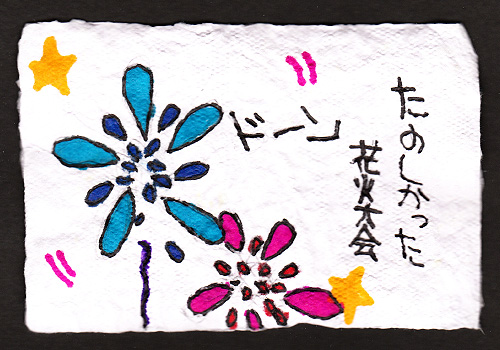 たのしかった
花火大会
ドーン